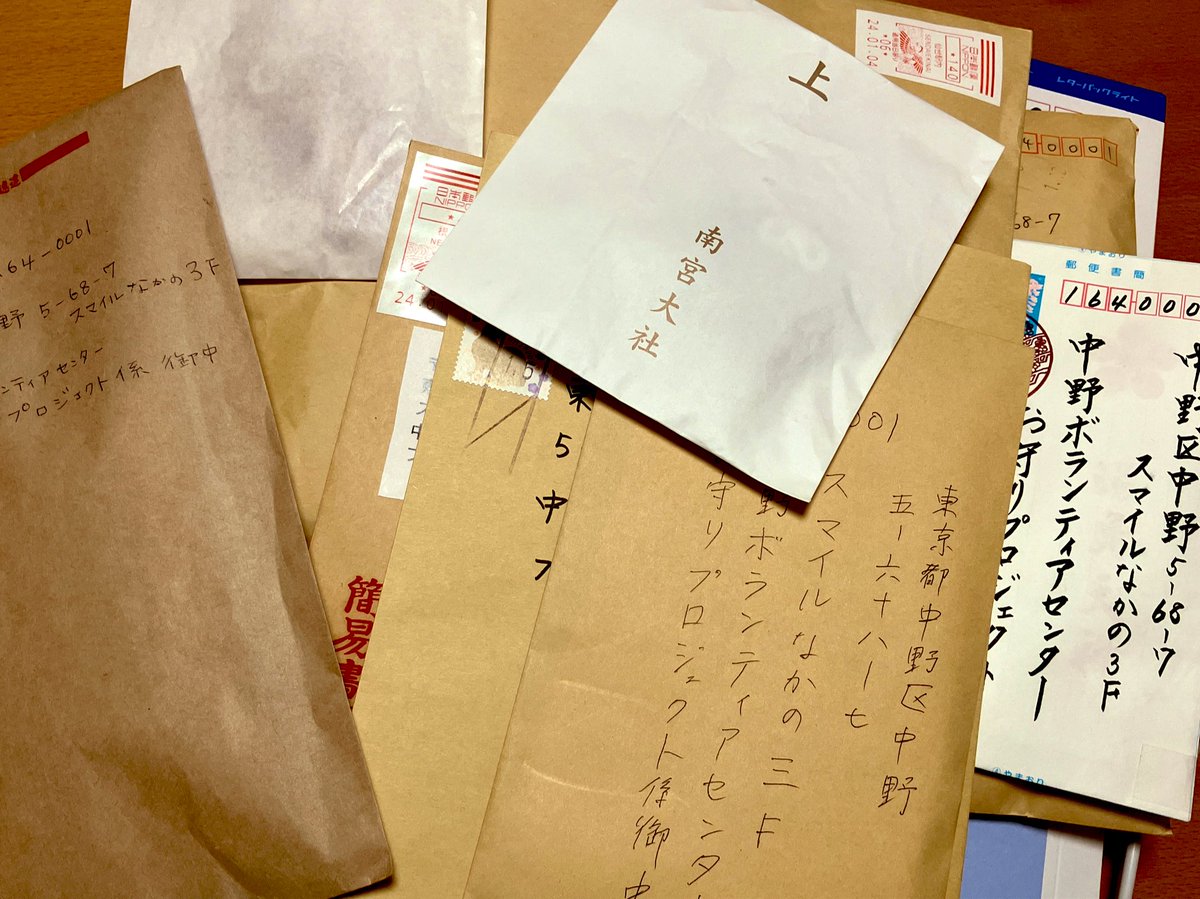 上
南宮大社
164-0001
野 5-68-7
スマイルなかの3F
ンティアセンター
プロジェクト係 御中
日本郵
NIPPO
24.
簡易書
東5中フ
日本郵便
NIPPON
140
24.01.04
レターパックライト
4-0001
68-7
やまおり
郵便書簡
164000
中野区中野5-68-7
スマイルなかの3F
中野ボランティアセンター
お守りプロジェクト
やまおり
001
東京都中野区中野
五ー六十八ー七
スマイルなかの三F
野ボランティアセンタ
守りプロジェクト係御中